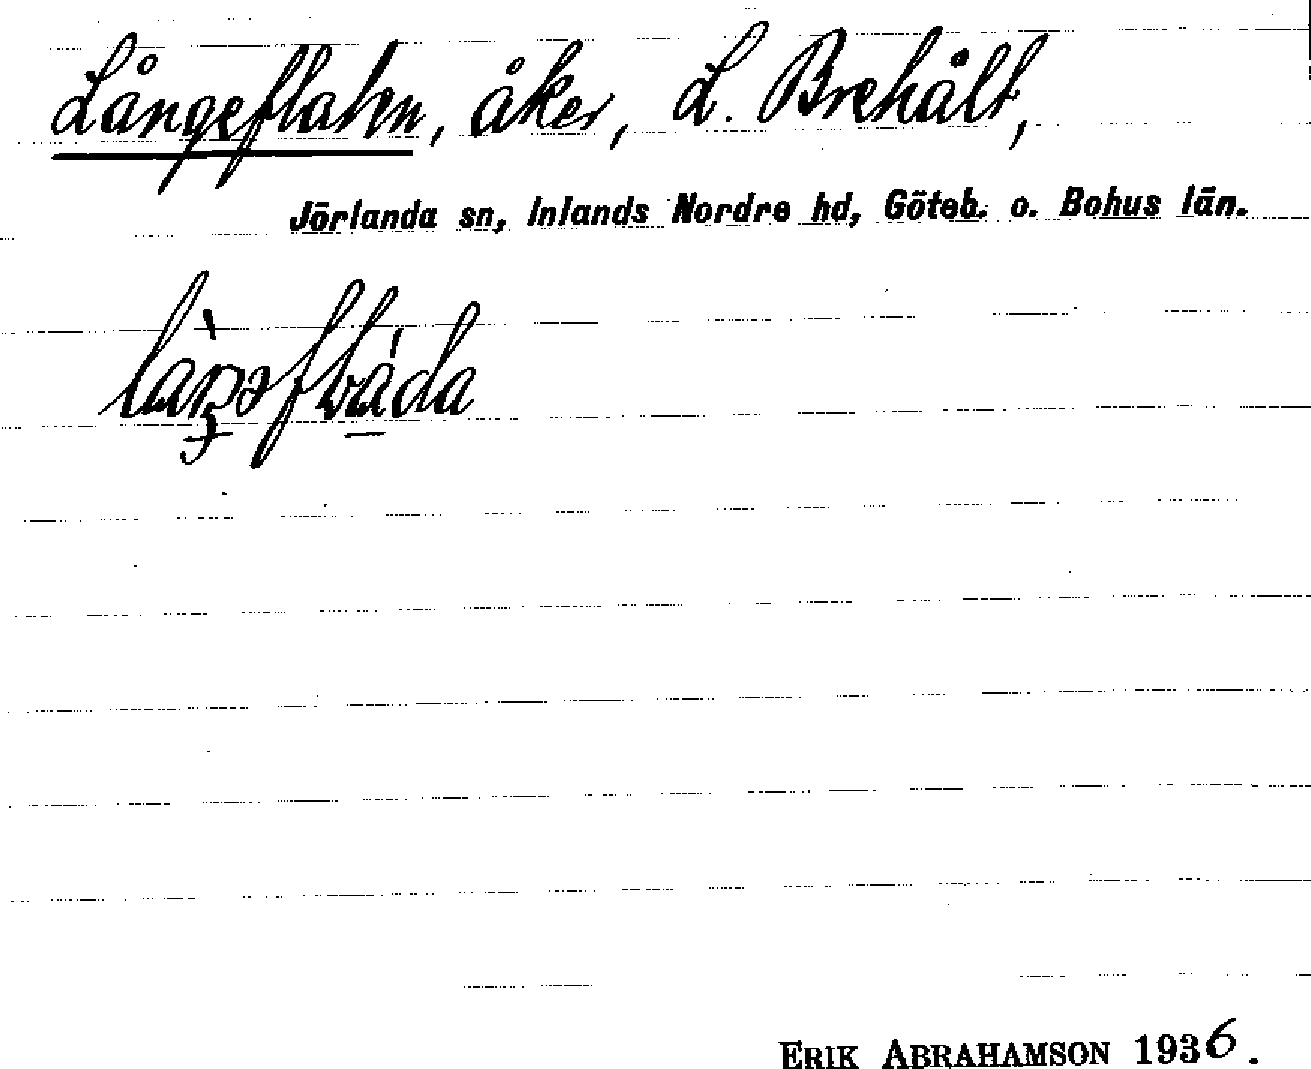 Långeflaten, åker, L. Brehålt,
Jörlanda sn, Inlands Nordre hd, Göteb. o. Bohus län.
ERIK ABRAHAMSON 1936.